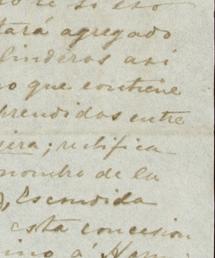 si eso
tará agregado
linderos así
no que contiene
prendidos entre
iera; rectifica
nombre de la
Escondida
esta concesion
ino á